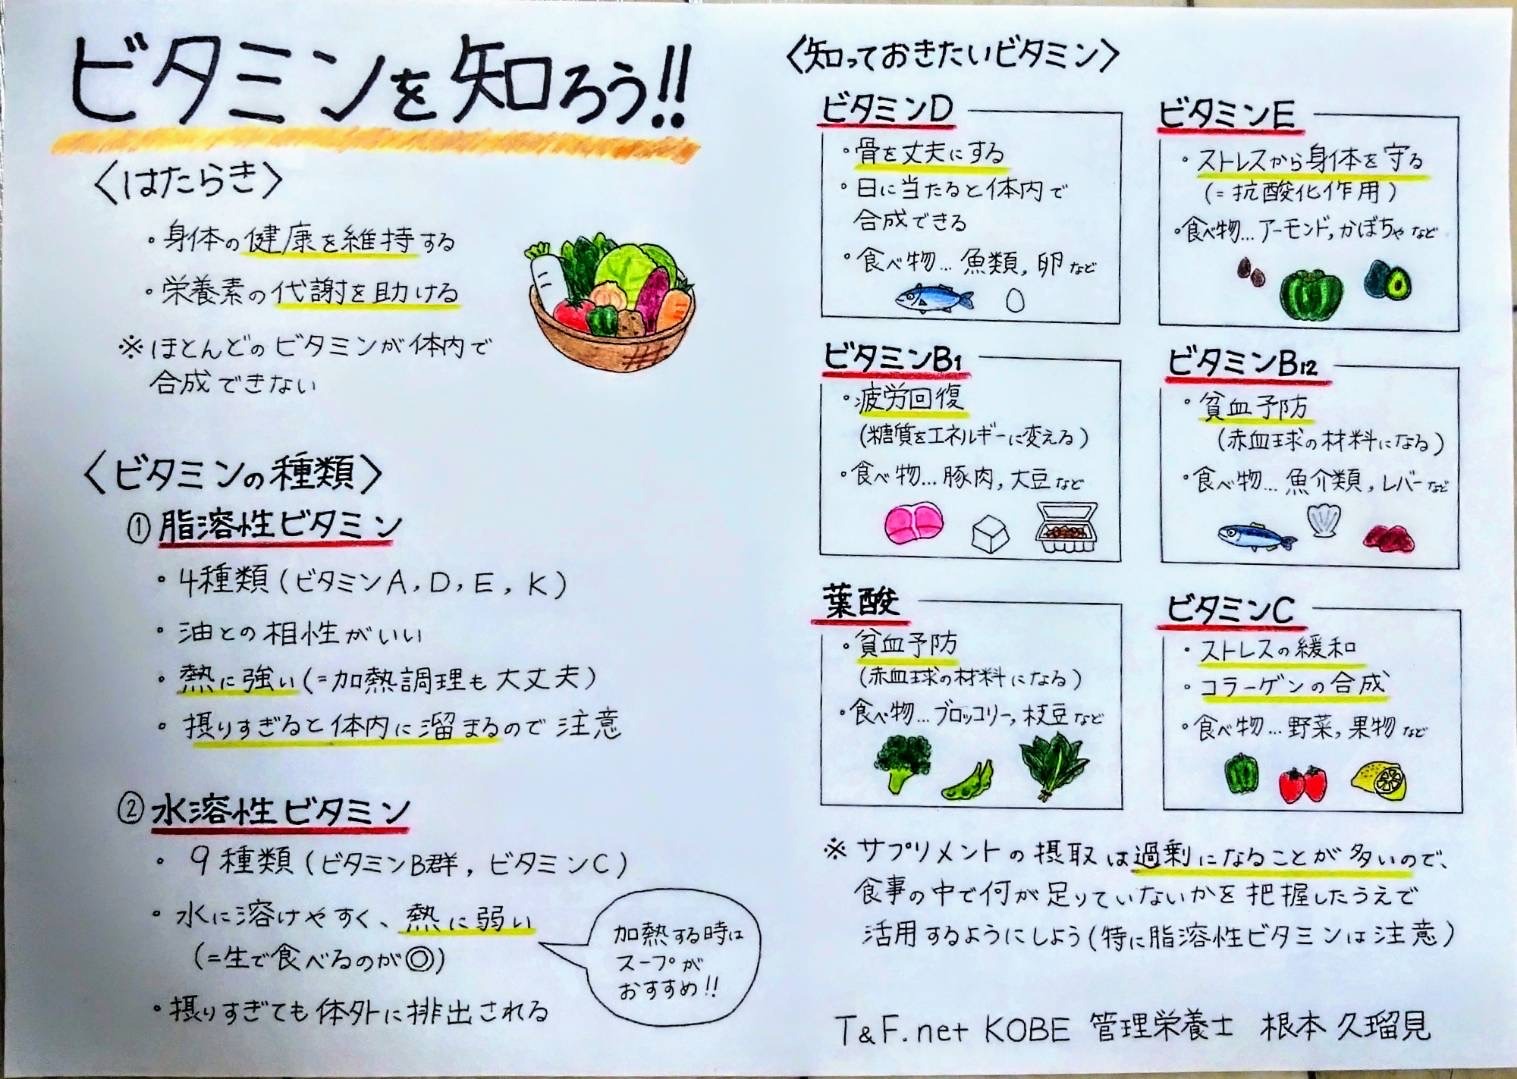 ビタミンを知ろう!!
〈はたらき〉
・身体の健康を維持する
・栄養素の代謝を助ける
※ほとんどのビタミンが体内で
合成できない
〈ビタミンの種類〉
① 脂溶性ビタミン
・4種類(ビタミンA, D, E, K)
・油との相性がいい
・熱に強い(=加熱調理も大丈夫)
・摂りすぎると体内に溜まるので注意
② 水溶性ビタミン
・9種類(ビタミンB群, ビタミンC)
・水に溶けやすく、熱に弱い
(=生で食べるのが◎)
・摂りすぎても体外に排出される
加熱する時は
スープが
おすすめ!!
〈知っておきたいビタミン〉
ビタミンD
・骨を丈夫にする
・日に当たると体内で
合成できる
・食べ物…魚類, 卵など
ビタミンE
・ストレスから身体を守る
(=抗酸化作用)
・食べ物…アーモンド, かぼちゃなど
ビタミンB1
・疲労回復
(糖質をエネルギーに変える)
・食べ物…豚肉, 大豆など
ビタミンB12
・貧血予防
(赤血球の材料になる)
・食べ物…魚介類, レバーなど
葉酸
・貧血予防
(赤血球の材料になる)
・食べ物…ブロッコリー, 枝豆など
ビタミンC
・ストレスの緩和
・コラーゲンの合成
・食べ物…野菜, 果物など
※サプリメントの摂取は過剰になることが多いので、
食事の中で何が足りていないかを把握したうえで
活用するようにしよう(特に脂溶性ビタミンは注意)
T&F.net KOBE 管理栄養士 根本 久瑠見